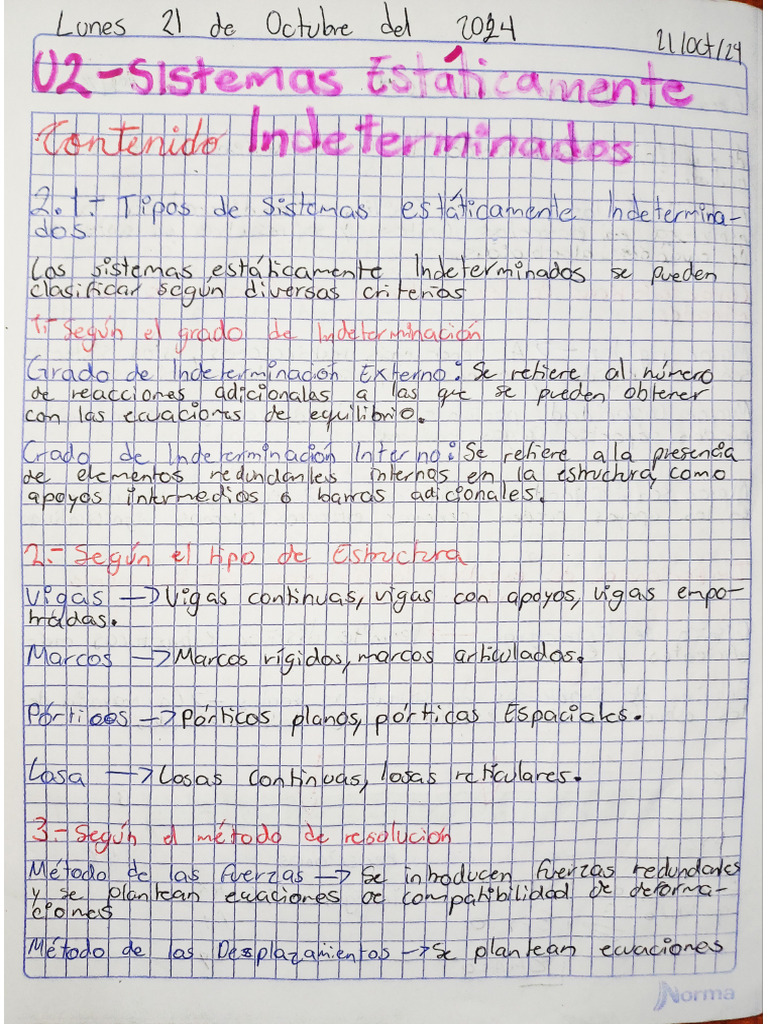 Lunes 21 de Octubre del 2024
21/Oct/24
U2-Sistemas Estáticamente
Contenido Indeterminados
2.1.- Tipos de Sistemas estáticamente Indetermina-
dos
Los sistemas estáticamente Indeterminados se pueden
clasificar según diversas criterios
1.- Según el grado de Indeterminación
Grado de Indeterminación Externo: Se refiere al número
de reacciones adicionalas a las que se pueden obtener
con las ecuaciones de equilibrio.
Grado de Indeterminación Interno: Se refiere a la presencia
de elementos redundantes internos en la estructura, como
apoyos intermedios o barras adicionales.
2.- Según el tipo de Estructura
Vigas → Vigas continuas, vigas con apoyos, vigas empo-
tradas.
Marcos → Marcos rígidos, marcos articulados.
Pórticos → Pórticos planos, pórticas Espaciales.
Losa → Losas continuas, losas reticulares.
3.- Según el método de resolución
Método de las fuerzas → Se introducen fuerzas redundantes
y se plantean ecuaciones de compatibilidad de deforma-
ciones
Método de las Desplazamientos → Se plantean ecuaciones
Norma